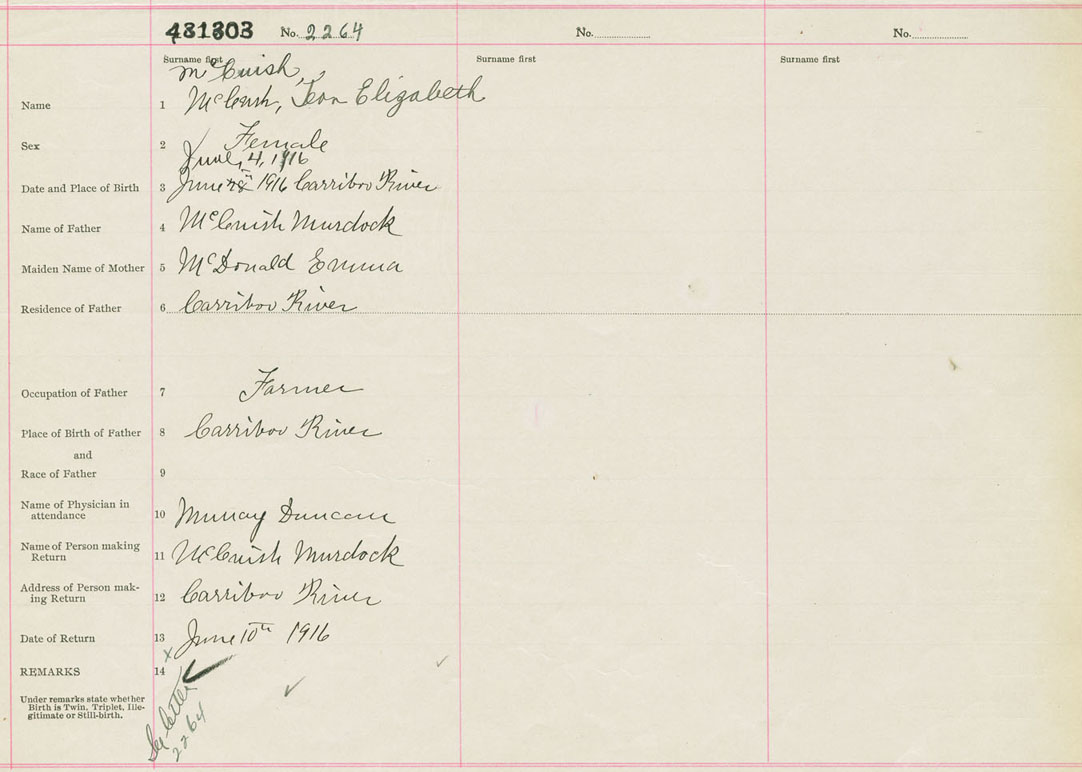 481303 No. 2264 No. No.
Surname first Surname first Surname first
McCuish,
Name 1 McCush, Jean Elizabeth
Sex 2 Female
June, 4, 1916
Date and Place of Birth 3 June 1916 Carriboo River
Name of Father 4 McCuish Murdock
Maiden Name of Mother 5 McDonald Emma
Residence of Father 6 Carriboo River
Occupation of Father 7 Farmer
Place of Birth of Father 8 Carriboo River
and
Race of Father 9
Name of Physician in
attendance 10 Murray Duncan
Name of Person making
Return 11 McCuish Murdock
Address of Person mak-
ing Return 12 Carriboo River
Date of Return 13 June 10th 1916
x
REMARKS 14
Under remarks state whether
Birth is Twin, Triplet, Ille-
gitimate or Still-birth.
See letter
2264